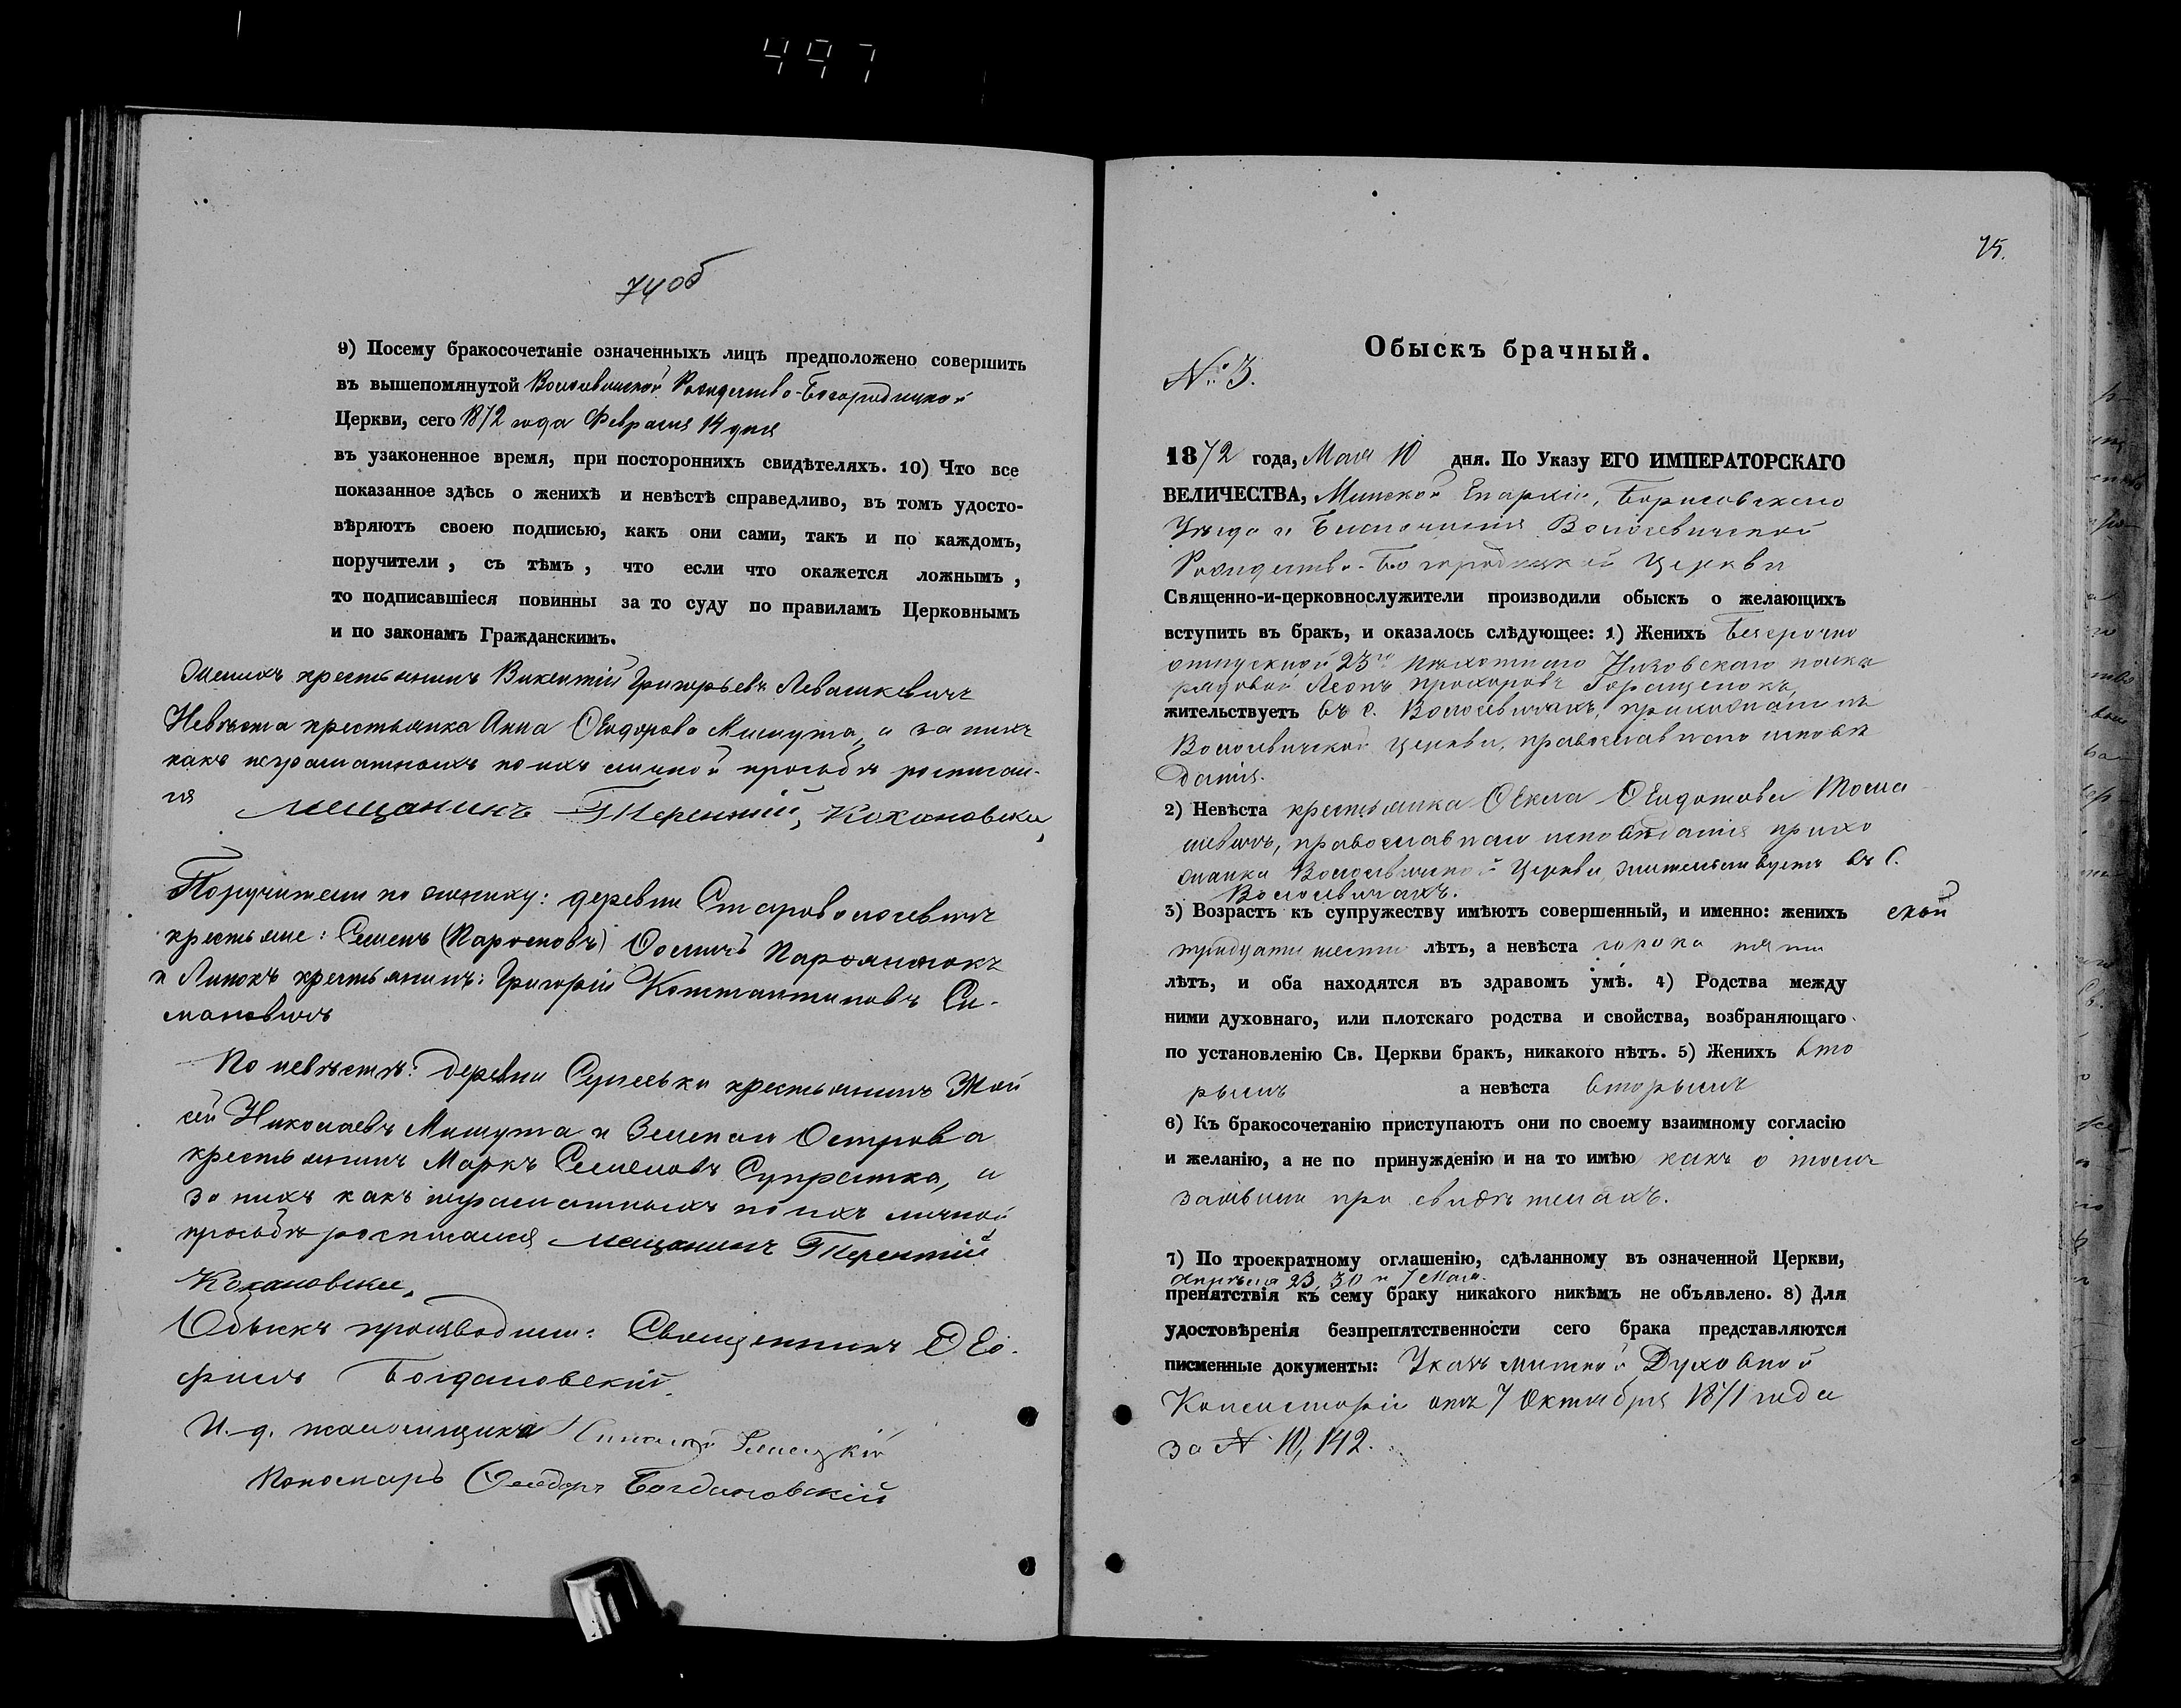 497
74об
9) Посему бракосочетаніе означенныхъ лицъ предположено совершить
въ вышепомянутой Волосевичской Рождество-Богородицкой
Церкви, сего 1872 года Февраля 14 дня
въ узаконенное время, при постороннихъ свидѣтеляхъ. 10) Что все
показанное здѣсь о женихѣ и невѣстѣ справедливо, въ томъ удосто-
вѣряютъ своею подписью, какъ они сами, такъ и по каждомъ,
поручители, съ тѣмъ, что если что окажется ложнымъ,
то подписавшіеся повинны за то суду по правиламъ Церковнымъ
и по законамъ Гражданскимъ.
Женихъ крестьянинъ Викентій Григорьевъ Левашкевичъ
Невѣста крестьянка Анна Ѳеодорова Мишута, а за нихъ
какъ неграматныхъ по ихъ личной просьбѣ росписал-
ся мещанинъ Терентій Кохановски
Поручители по жениху: деревни Староволосевичъ
крестьяне: Семенъ (Парѳеновъ) Парѳяненокъ
и Липокъ крестьянинъ: Григорій Константиновъ Си-
мановичъ
По невѣстѣ: деревни крестьянинъ Мой
сей Николаевъ Мишута и Зеленой Острова
крестьянинъ Маркъ Семеновъ Супратка, а
за нихъ какъ неграматныхъ по ихъ личной
просьбѣ росписался мещанинъ Терентій
Кохановски
Обыскъ производили: Священникъ Ѳео-
филъ Богдановскій.
И. д. псаломщика
Пономарь Ѳеодоръ Богдановскій
75.
Обыскъ брачный.
№ 3.
1872 года, Мая 10 дня. По Указу ЕГО ИМПЕРАТОРСКАГО
ВЕЛИЧЕСТВА, Минской Епархіи, Борисовскаго
Уѣзда и Благочинія Волосевичской
Рождество-Богородицкой Церкви
Священно-и-церковнослужители производили обыскъ о желающихъ
вступить въ бракъ, и оказалось слѣдующее: 1) Женихъ безсрочно
отпускной 23го пѣхотнаго Низовскаго полка
рядовой Леонъ Прохоровъ Горащенокъ,
жительствуетъ въ с. Волосевичахъ, прихожанинъ
Волосевичской церкви, православнаго исповѣ
данія.
2) Невѣста крестьянка Ѳекла Ѳеодотова Тома
шевичъ, православнаго исповѣданія прихо
жанка Волосевичской Церкви, жительствуетъ въ с.
Волосевичахъ.
3) Возрастъ къ супружеству имѣютъ совершенный, и именно: женихъ
тридцати шести лѣтъ, а невѣста сорока пяти
лѣтъ, и оба находятся въ здравомъ умѣ. 4) Родства между
ними духовнаго, или плотскаго родства и свойства, возбраняющаго
по установленію Св. Церкви бракъ, никакого нѣтъ. 5) Женихъ вто
рымъ а невѣста вторымъ
6) Къ бракосочетанію приступаютъ они по своему взаимному согласію
и желанію, а не по принужденію и на то имѣю какъ о томъ
заявили при свидѣтеляхъ.
7) По троекратному оглашенію, сдѣланному въ означенной Церкви,
Апрѣля 23, 30 и 7 Мая.
препятствія къ сему браку никакого никѣмъ не объявлено. 8) Для
удостовѣренія безпрепятственности сего брака представляются
писменные документы: Указъ Минской Духовной
Консисторіи отъ 7 Октября 1871 года
за № 10,142.
ской